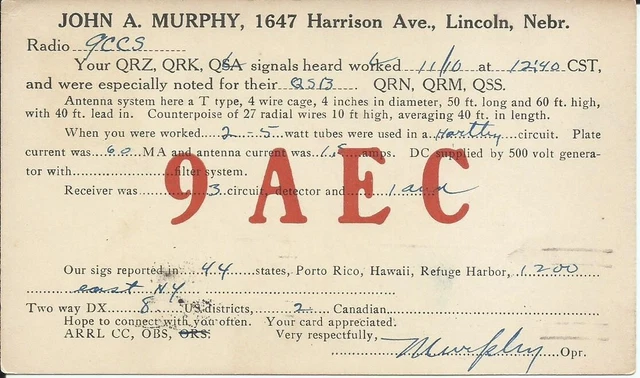 JOHN A. MURPHY, 1647 Harrison Ave., Lincoln, Nebr.
Radio 9CCS
Your QRZ, QRK, QSA signals heard worked 11/10 at 12:40 CST,
and were especially noted for their QSB QRN, QRM, QSS.
Antenna system here a T type, 4 wire cage, 4 inches in diameter, 50 ft. long and 60 ft. high,
with 40 ft. lead in. Counterpoise of 27 radial wires 10 ft high, averaging 40 ft. in length.
When you were worked 2-5 watt tubes were used in a Hartley circuit. Plate
current was 60 MA and antenna current was 1.5 amps. DC supplied by 500 volt genera-
tor with filter system.
Receiver was 3 circuit, detector and 1 aud
9AEC
Our sigs reported in 44 states, Porto Rico, Hawaii, Refuge Harbor, 1200
east NY
Two way DX 8 US districts, 2 Canadian
Hope to connect with you often. Your card appreciated.
ARRL CC, OBS, ORS. Very respectfully,
Murphy Opr.